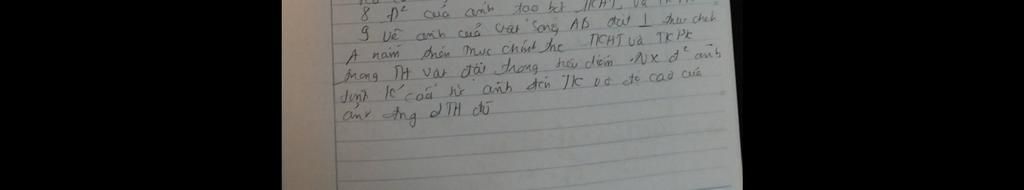 8 Đ² của ảnh tạo bởi TKHT và
9 Vẽ ảnh của vật sáng AB đặt ⊥ trục chính
A nằm trên trục chính TKHT và TKPK
trong TH vật đặt trong tiêu điểm Nx đ² ảnh
từ ảnh đến TK và độ cao của
ảnh 2 TH đó